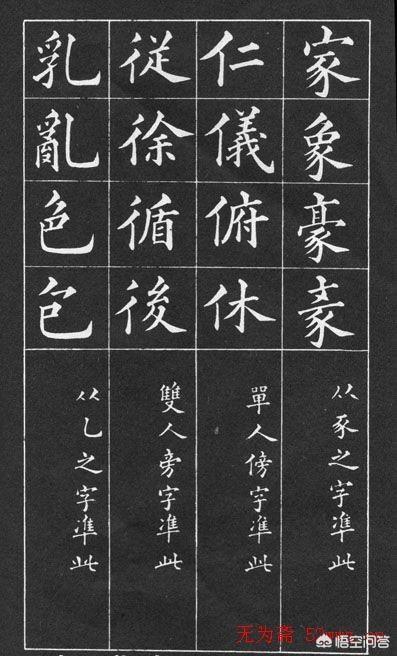 家象豪
从豕之字凖此
仁儀俯休
單人傍字凖此
従徐循後
雙人旁字凖此
乳亂色包
从乙之字凖此
无为斋
悟空问答